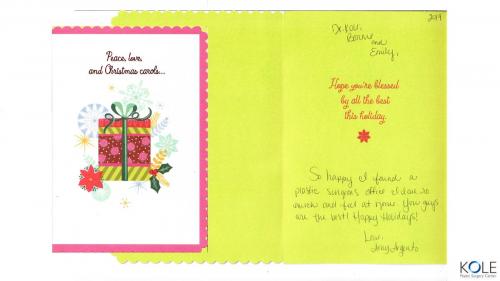 Peace, love,
and Christmas carols...
2019
Dr. Kole,
Bonnie
and
Emily,
Hope you're blessed
by all the best
this holiday.
So happy I found a
plastic surgeons office I love so
much and feel at home. You guys
are the best! Happy Holidays!
Love,
Amy Argento
KOLE
Plastic Surgery Center